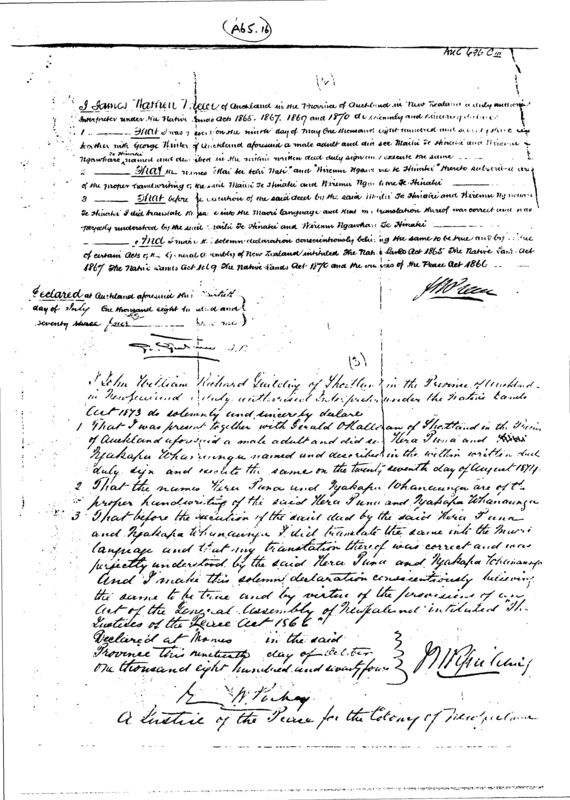 (Ab5.16)
AUC 676 C iii
(2)
I James Warren of Auckland in the Province of Auckland in New Zealand a duly
Interpreter under the Native Lands Acts 1865, 1867, 1869 and 1870 do solemnly and sincerely declare
1 That I was on the ninth day of May One thousand eight hundred and
together with George of Auckland aforesaid a male adult and did see Te Hinaki and Wiremu
Te Hinaki
named and described in the within written deed duly sign and execute the same
2 That the names and Te Hinaki" thereto subscribed are
of the proper handwriting of the said Te Hinaki and Wiremu Te Hinaki
3 That before execution of the said deed by the said Te Hinaki and Wiremu
Te Hinaki I did translate the same into the Maori language and that my translation thereof was correct and was
perfectly understood by the said Te Hinaki and Wiremu Te Hinaki
And I make this solemn declaration conscientiously believing the same to be true and by virtue
of certain Acts of the General Assembly of New Zealand intituled The Native Lands Act 1865 The Native Lands Act
1867 The Native Lands Act 1869 The Native Lands Act 1870 and the Justices of the Peace Act 1866
Declared at Auckland aforesaid this
day of July One thousand eight hundred and
seventy four
J.P.
(3)
I John William Richard Guilding of Shortland in the Province of Auckland
in New Zealand a duly authorised Interpreter under the Native Lands
Act 1873 do solemnly and sincerely declare
1 That I was present together with Gerald O'Halloran of Shortland in the Province
of Auckland aforesaid a male adult and did see Hera Puna and
Ngakapa Whanaunga named and described in the within written deed
duly sign and execute the same on the twenty seventh day of August 1874.
2 That the names Hera Puna and Ngakapa Whanaunga are of the
proper handwriting of the said Hera Puna and Ngakapa Whanaunga
3 That before the execution of the said deed by the said Hera Puna
and Ngakapa Whanaunga I did translate the same into the Maori
language and that my translation thereof was correct and was
perfectly understood by the said Hera Puna and Ngakapa Whanaunga
And I make this solemn declaration conscientiously believing
the same to be true and by virtue of the provisions of an
Act of the General Assembly of New Zealand intituled "The
Justices of the Peace Act 1866"
Declared at Thames in the said
Province this nineteenth day of October
One thousand eight hundred and seventy four
JWRGuilding
A Justice of the Peace for the Colony of New Zealand